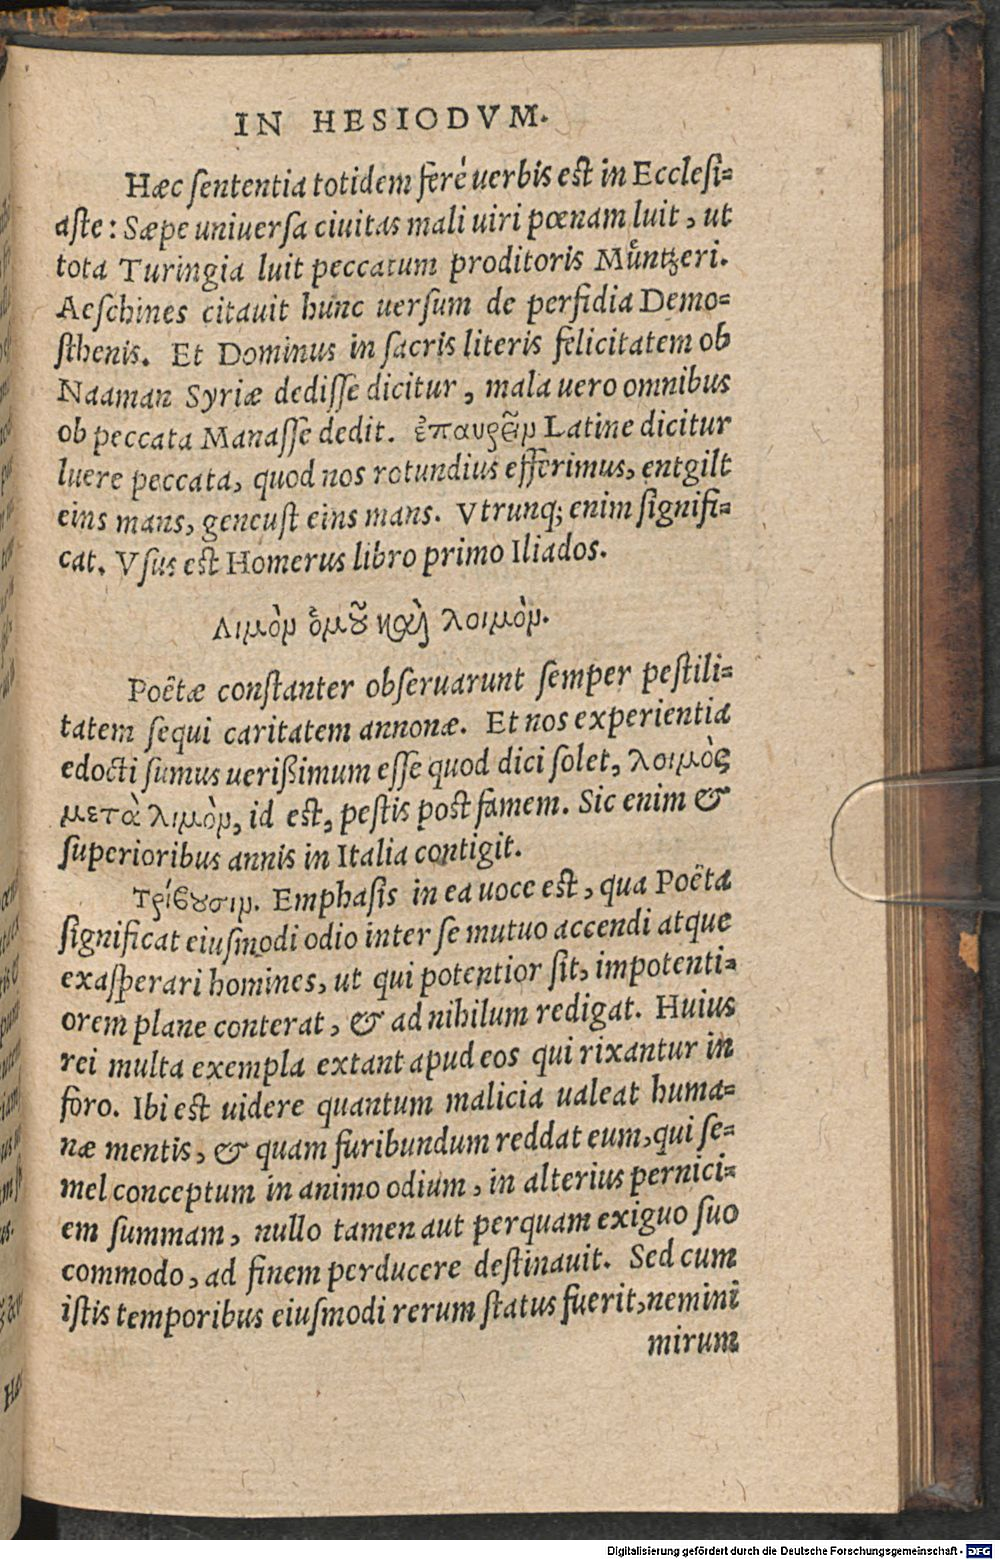 IN HESIODVM.
Hæc sententia totidem ferè uerbis est in Ecclesi=
aste: Sæpe uniuersa ciuitas mali uiri pœnam luit, ut
tota Turingia luit peccatum proditoris Můntzeri.
Aeschines citauit hunc uersum de perfidia Demo=
sthenis. Et Dominus in sacris literis felicitatem ob
Naaman Syriæ dedisse dicitur, mala uero omnibus
ob peccata Manasse dedit. ἐπαυρῶν Latine dicitur
luere peccata, quod nos rotundius efferimus, entgilt
eins mans, geneust eins mans. Vtrunq; enim signifi=
cat. Vsus est Homerus libro primo Iliados.
Λιμὸν ὁμοῦ καὶ λοιμὸν.
Poëtæ constanter obseruarunt semper pestili=
tatem sequi caritatem annonæ. Et nos experientia
edocti sumus uerißimum esse quod dici solet, λοιμὸς
μετὰ λιμὸν, id est, pestis post famem. Sic enim &
superioribus annis in Italia contigit.
Τρίβουσιν. Emphasis in ea uoce est, qua Poëta
significat eiusmodi odio inter se mutuo accendi atque
exasperari homines, ut qui potentior sit, impotenti=
orem plane conterat, & ad nihilum redigat. Huius
rei multa exempla extant apud eos qui rixantur in
foro. Ibi est uidere quantum malicia ualeat huma=
næ mentis, & quam furibundum reddat eum, qui se=
mel conceptum in animo odium, in alterius pernici=
em summam, nullo tamen aut perquam exiguo suo
commodo, ad finem perducere destinauit. Sed cum
istis temporibus eiusmodi rerum status fuerit, nemini
mirum
Digitalisierung gefördert durch die Deutsche Forschungsgemeinschaft - DFG